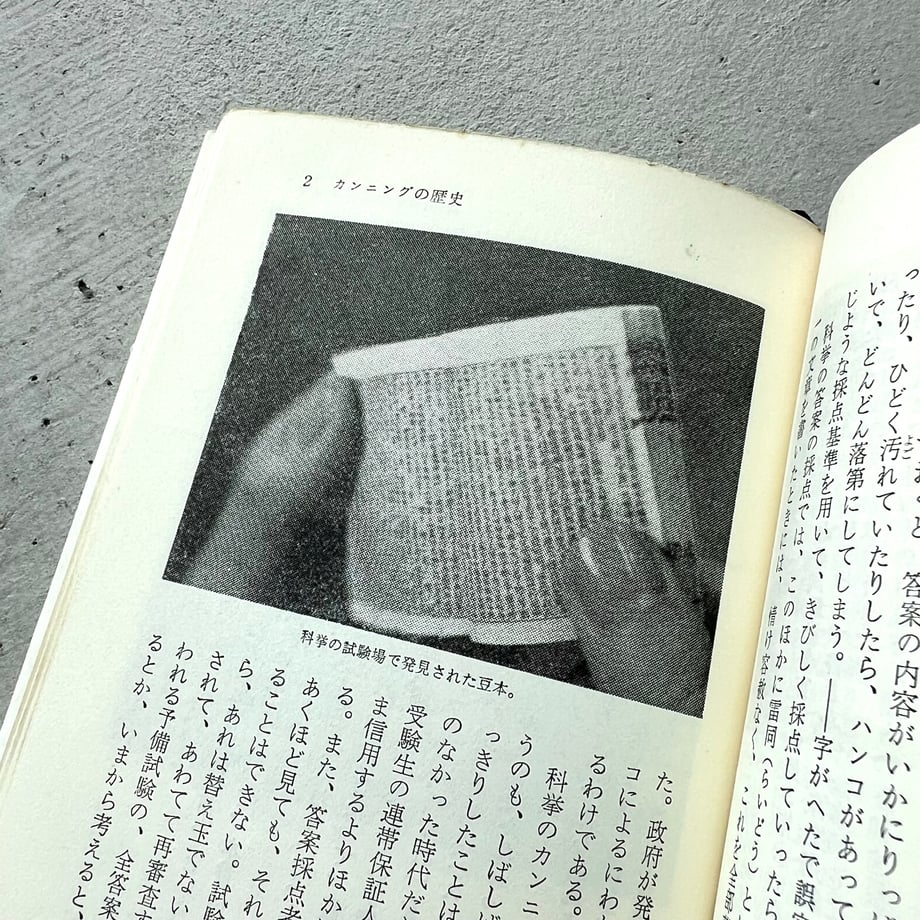 答案の内容がいかにりっ
ったり、ひどく汚れていたりしたら、ハンコがあって
いで、どんどん落第にしてしまう。――字がへたで誤
じような採点基準を用いて、きびしく採点していったら
科挙の答案の採点では、このほかに雷同（らいどう）と
の文章を書いたときには、情け容赦なく、これを全部
2 カンニングの歴史
科挙の試験場で発見された豆本。
た。政府が発
コによるにわ
るわけである。
科挙のカンニ
うのも、しばしば
っきりしたことは
のなかった時代だ
受験生の連帯保証人
ま信用するよりほか
る。また、答案採点者
あくほど見ても、それ
ることはできない。試験
ら、あれは替え玉でない
されて、あわてて再審査す
われる予備試験の、全答案
るとか、いまから考えると、